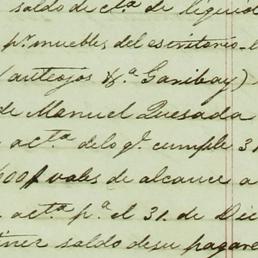 saldo de cta. de liquid
pr. muebles del escritorio
(anteojos &.a Garibay)
de Manuel Quesada
acta. delo q. cumple 31
600 f vales de alcance a
acta. pa. el 31. de Dic
tinez saldo desu pagare